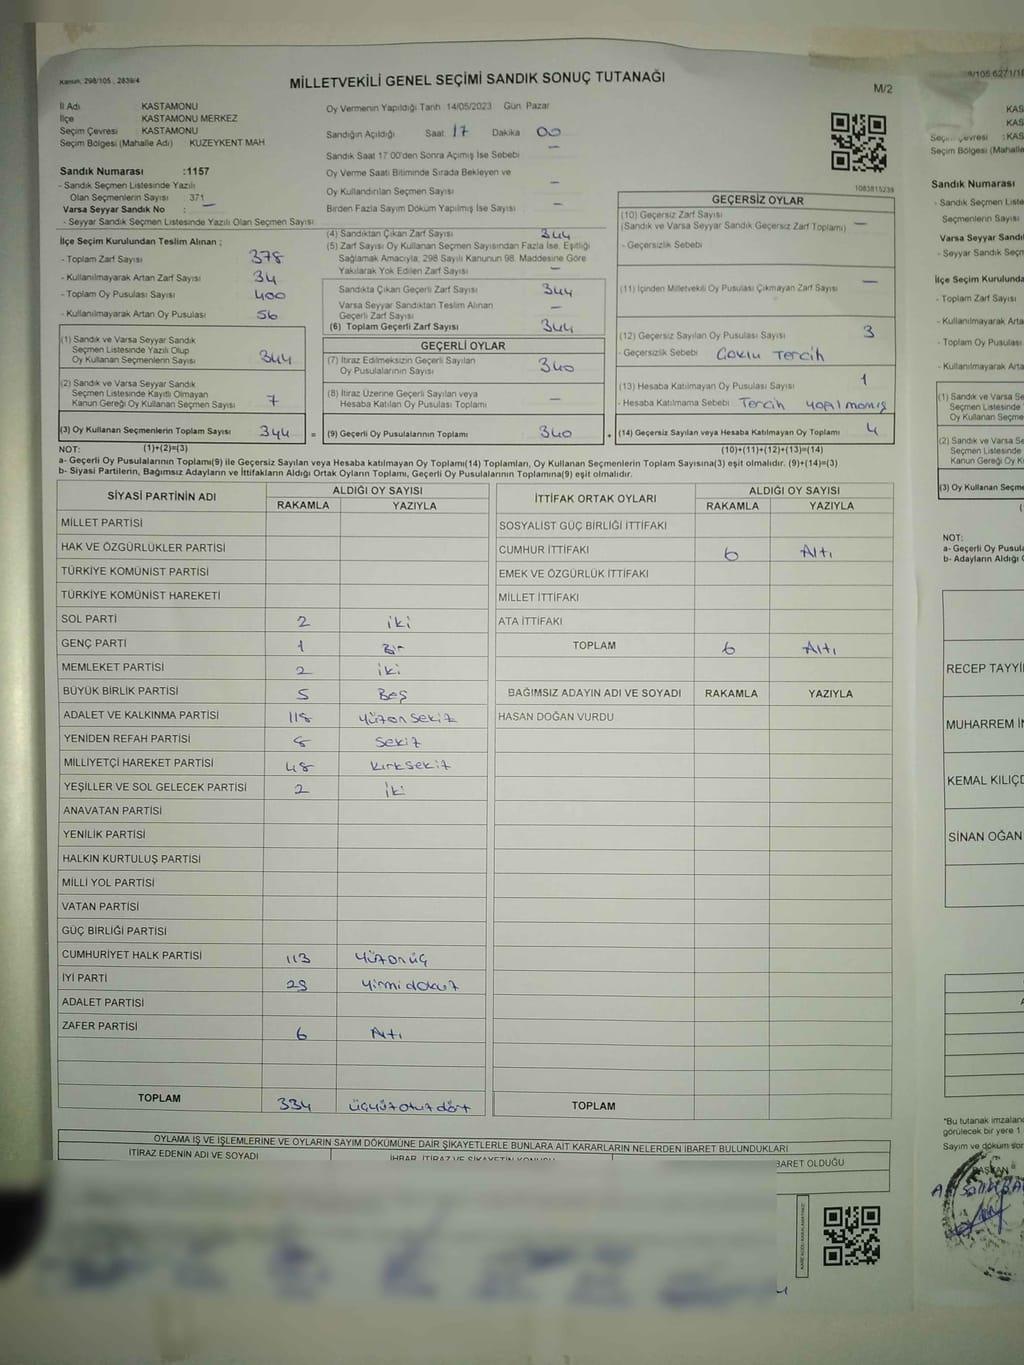 Kanun: 298/105 , 2839/4
MİLLETVEKİLİ GENEL SEÇİMİ SANDIK SONUÇ TUTANAĞI
M/2
İl Adı KASTAMONU
İlçe KASTAMONU MERKEZ
Seçim Çevresi : KASTAMONU
Seçim Bölgesi (Mahalle Adı) KUZEYKENT MAH
Sandık Numarası :1157
- Sandık Seçmen Listesinde Yazılı
Olan Seçmenlerin Sayısı : 371
Varsa Seyyar Sandık No : —
- Seyyar Sandık Seçmen Listesinde Yazılı Olan Seçmen Sayısı:
Oy Vermenin Yapıldığı Tarih 14/05/2023 Gün Pazar
Sandığın Açıldığı Saat 17 Dakika 00
Sandık Saat 17:00'den Sonra Açılmış İse Sebebi —
Oy Verme Saati Bitiminde Sırada Bekleyen ve
Oy Kullandırılan Seçmen Sayısı —
Birden Fazla Sayım Döküm Yapılmış İse Sayısı —
1083815239
İlçe Seçim Kurulundan Teslim Alınan ;
- Toplam Zarf Sayısı 378
- Kullanılmayarak Artan Zarf Sayısı 34
- Toplam Oy Pusulası Sayısı 400
- Kullanılmayarak Artan Oy Pusulası 56
(1) Sandık ve Varsa Seyyar Sandık
Seçmen Listesinde Yazılı Olup
Oy Kullanan Seçmenlerin Sayısı 344
(2) Sandık ve Varsa Seyyar Sandık
Seçmen Listesinde Kayıtlı Olmayan
Kanun Gereği Oy Kullanan Seçmen Sayısı 7
(3) Oy Kullanan Seçmenlerin Toplam Sayısı 344 =
(4) Sandıktan Çıkan Zarf Sayısı 344
(5) Zarf Sayısı Oy Kullanan Seçmen Sayısından Fazla İse, Eşitliği
Sağlamak Amacıyla, 298 Sayılı Kanunun 98. Maddesine Göre
Yakılarak Yok Edilen Zarf Sayısı —
Sandıkta Çıkan Geçerli Zarf Sayısı 344
Varsa Seyyar Sandıktan Teslim Alınan
Geçerli Zarf Sayısı —
(6) Toplam Geçerli Zarf Sayısı 344
GEÇERLİ OYLAR
(7) İtiraz Edilmeksizin Geçerli Sayılan
Oy Pusulalarının Sayısı 340
(8) İtiraz Üzerine Geçerli Sayılan veya
Hesaba Katılan Oy Pusulası Toplamı —
(9) Geçerli Oy Pusulalarının Toplamı 340 +
GEÇERSİZ OYLAR
(10) Geçersiz Zarf Sayısı
(Sandık ve Varsa Seyyar Sandık Geçersiz Zarf Toplamı) —
- Geçersizlik Sebebi
(11) İçinden Milletvekili Oy Pusulası Çıkmayan Zarf Sayısı —
(12) Geçersiz Sayılan Oy Pusulası Sayısı 3
- Geçersizlik Sebebi Çoklu Tercih
(13) Hesaba Katılmayan Oy Pusulası Sayısı 1
- Hesaba Katılmama Sebebi Tercih yapılmamış
(14) Geçersiz Sayılan veya Hesaba Katılmayan Oy Toplamı 4
NOT: (1)+(2)=(3) (10)+(11)+(12)+(13)=(14)
a- Geçerli Oy Pusulalarının Toplamı(9) ile Geçersiz Sayılan veya Hesaba katılmayan Oy Toplamı(14) Toplamları, Oy Kullanan Seçmenlerin Toplam Sayısına(3) eşit olmalıdır. (9)+(14)=(3)
b- Siyasi Partilerin, Bağımsız Adayların ve İttifakların Aldığı Ortak Oyların Toplamı, Geçerli Oy Pusulalarının Toplamına(9) eşit olmalıdır.
SİYASİ PARTİNİN ADI ALDIĞI OY SAYISI
RAKAMLA YAZIYLA
MİLLET PARTİSİ
HAK VE ÖZGÜRLÜKLER PARTİSİ
TÜRKİYE KOMÜNİST PARTİSİ
TÜRKİYE KOMÜNİST HAREKETİ
SOL PARTİ 2 iki
GENÇ PARTİ 1 Bir
MEMLEKET PARTİSİ 2 iki
BÜYÜK BİRLİK PARTİSİ 5 Beş
ADALET VE KALKINMA PARTİSİ 118 Yüzon sekiz
YENİDEN REFAH PARTİSİ 8 Sekiz
MİLLİYETÇİ HAREKET PARTİSİ 48 Kırksekiz
YEŞİLLER VE SOL GELECEK PARTİSİ 2 iki
ANAVATAN PARTİSİ
YENİLİK PARTİSİ
HALKIN KURTULUŞ PARTİSİ
MİLLİ YOL PARTİSİ
VATAN PARTİSİ
GÜÇ BİRLİĞİ PARTİSİ
CUMHURİYET HALK PARTİSİ 113 Yüzonüç
İYİ PARTİ 29 Yirmi dokuz
ADALET PARTİSİ
ZAFER PARTİSİ 6 Altı
TOPLAM 334 üçyüzotuz dört
İTTİFAK ORTAK OYLARI ALDIĞI OY SAYISI
RAKAMLA YAZIYLA
SOSYALİST GÜÇ BİRLİĞİ İTTİFAKI
CUMHUR İTTİFAKI 6 Altı
EMEK VE ÖZGÜRLÜK İTTİFAKI
MİLLET İTTİFAKI
ATA İTTİFAKI
TOPLAM 6 Altı
BAĞIMSIZ ADAYIN ADI VE SOYADI RAKAMLA YAZIYLA
HASAN DOĞAN VURDU
TOPLAM
OYLAMA İŞ VE İŞLEMLERİNE VE OYLARIN SAYIM DÖKÜMÜNE DAİR ŞİKAYETLERLE BUNLARA AİT KARARLARIN NELERDEN İBARET BULUNDUKLARI
İTİRAZ EDENİN ADI VE SOYADI İHBAR, İTİRAZ VE ŞİKAYETİN KONUSU BARET OLDUĞU
/105 6271/1
KAS
KAS
Seçi evresi : KAS
Seçim Bölgesi (Mahalle
Sandık Numarası
- Sandık Seçmen Liste
Seçmenlerin Sayısı
Varsa Seyyar Sandı
- Seyyar Sandık Seçm
İlçe Seçim Kurulunda
- Toplam Zarf Sayısı
- Kullanılmayarak Arta
- Toplam Oy Pusulası
- Kullanılmayarak Arta
(1) Sandık ve Varsa Se
Seçmen Listesinde
Oy Kullanan Seçme
(2) Sandık ve Varsa Se
Seçmen Listesinde
Kanun Gereği Oy K
(3) Oy Kullanan Seçme
NOT:
a- Geçerli Oy Pusula
b- Adayların Aldığı
RECEP TAYYİ
MUHARREM İN
KEMAL KILIÇD
SİNAN OĞAN
*Bu tutanak imzalan
görülecek bir yere 1
Sayım ve döküm sor
BAŞKAN